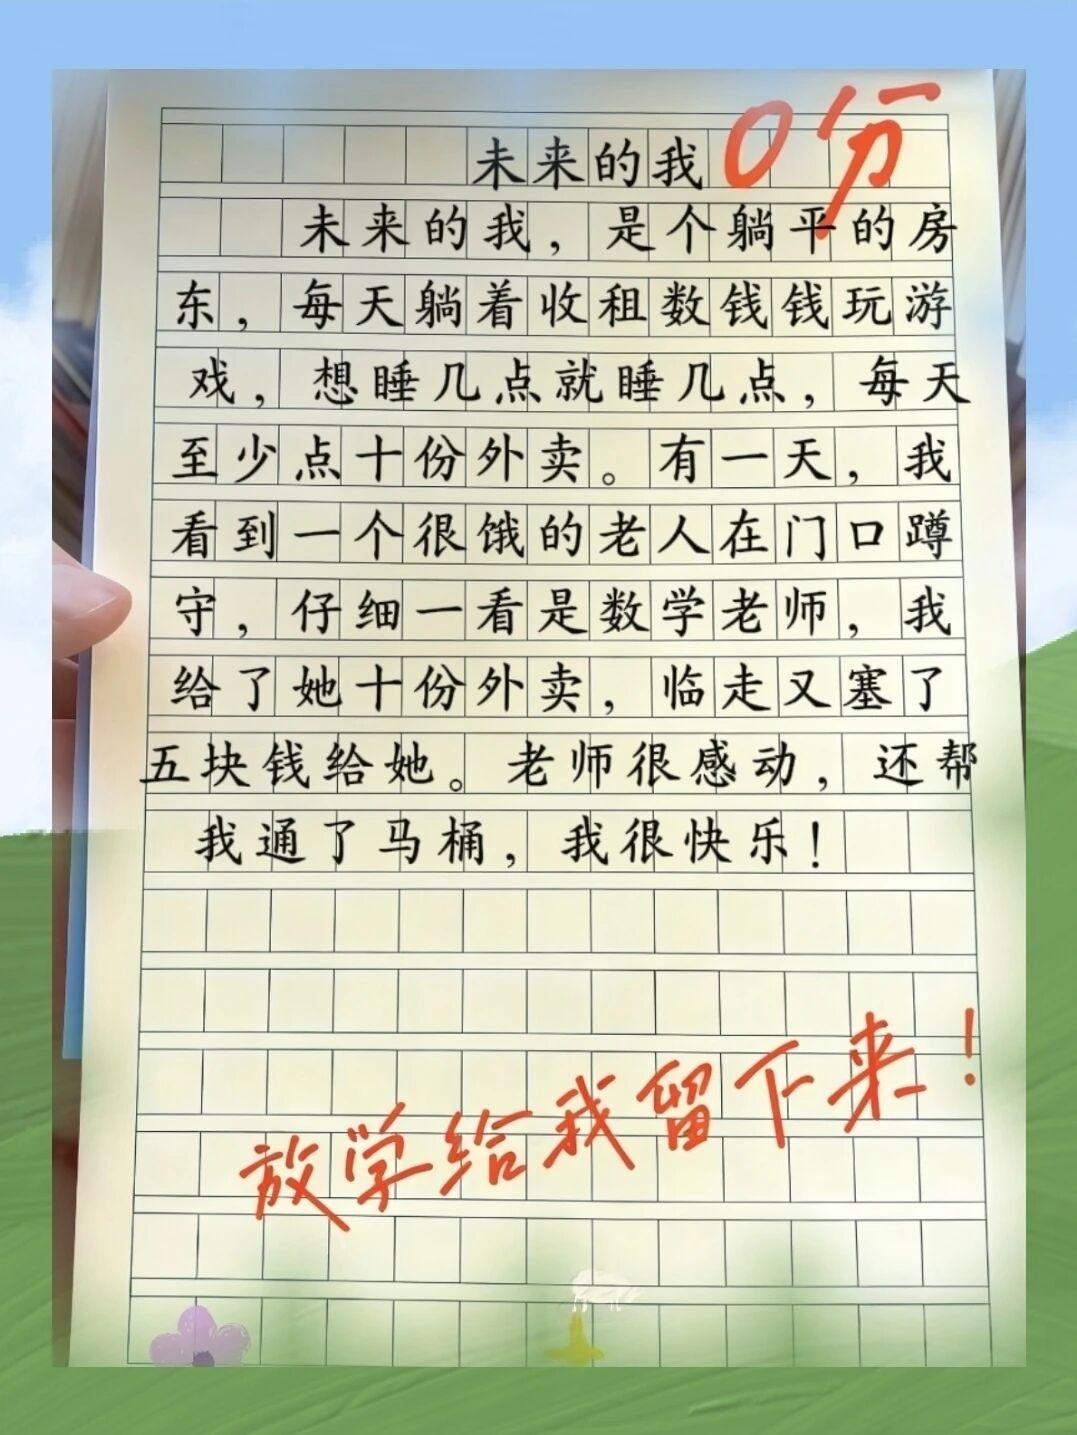 未来的我 0分
未来的我，是个躺平的房
东，每天躺着收租数钱钱玩游
戏，想睡几点就睡几点，每天
至少点十份外卖。有一天，我
看到一个很饿的老人在门口蹲
守，仔细一看是数学老师，我
给了她十份外卖，临走又塞了
五块钱给她。老师很感动，还帮
我通了马桶，我很快乐！
放学给我留下来！